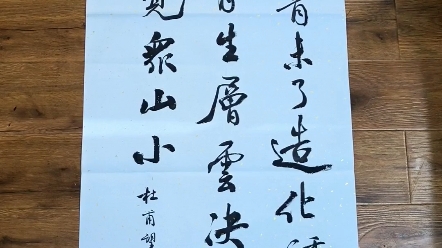 青未了造化
生層雲決
覽眾山小
杜甫望